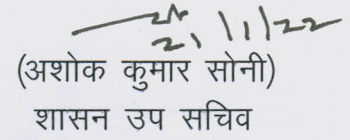 21/1/22
(अशोक कुमार सोनी)
शासन उप सचिव